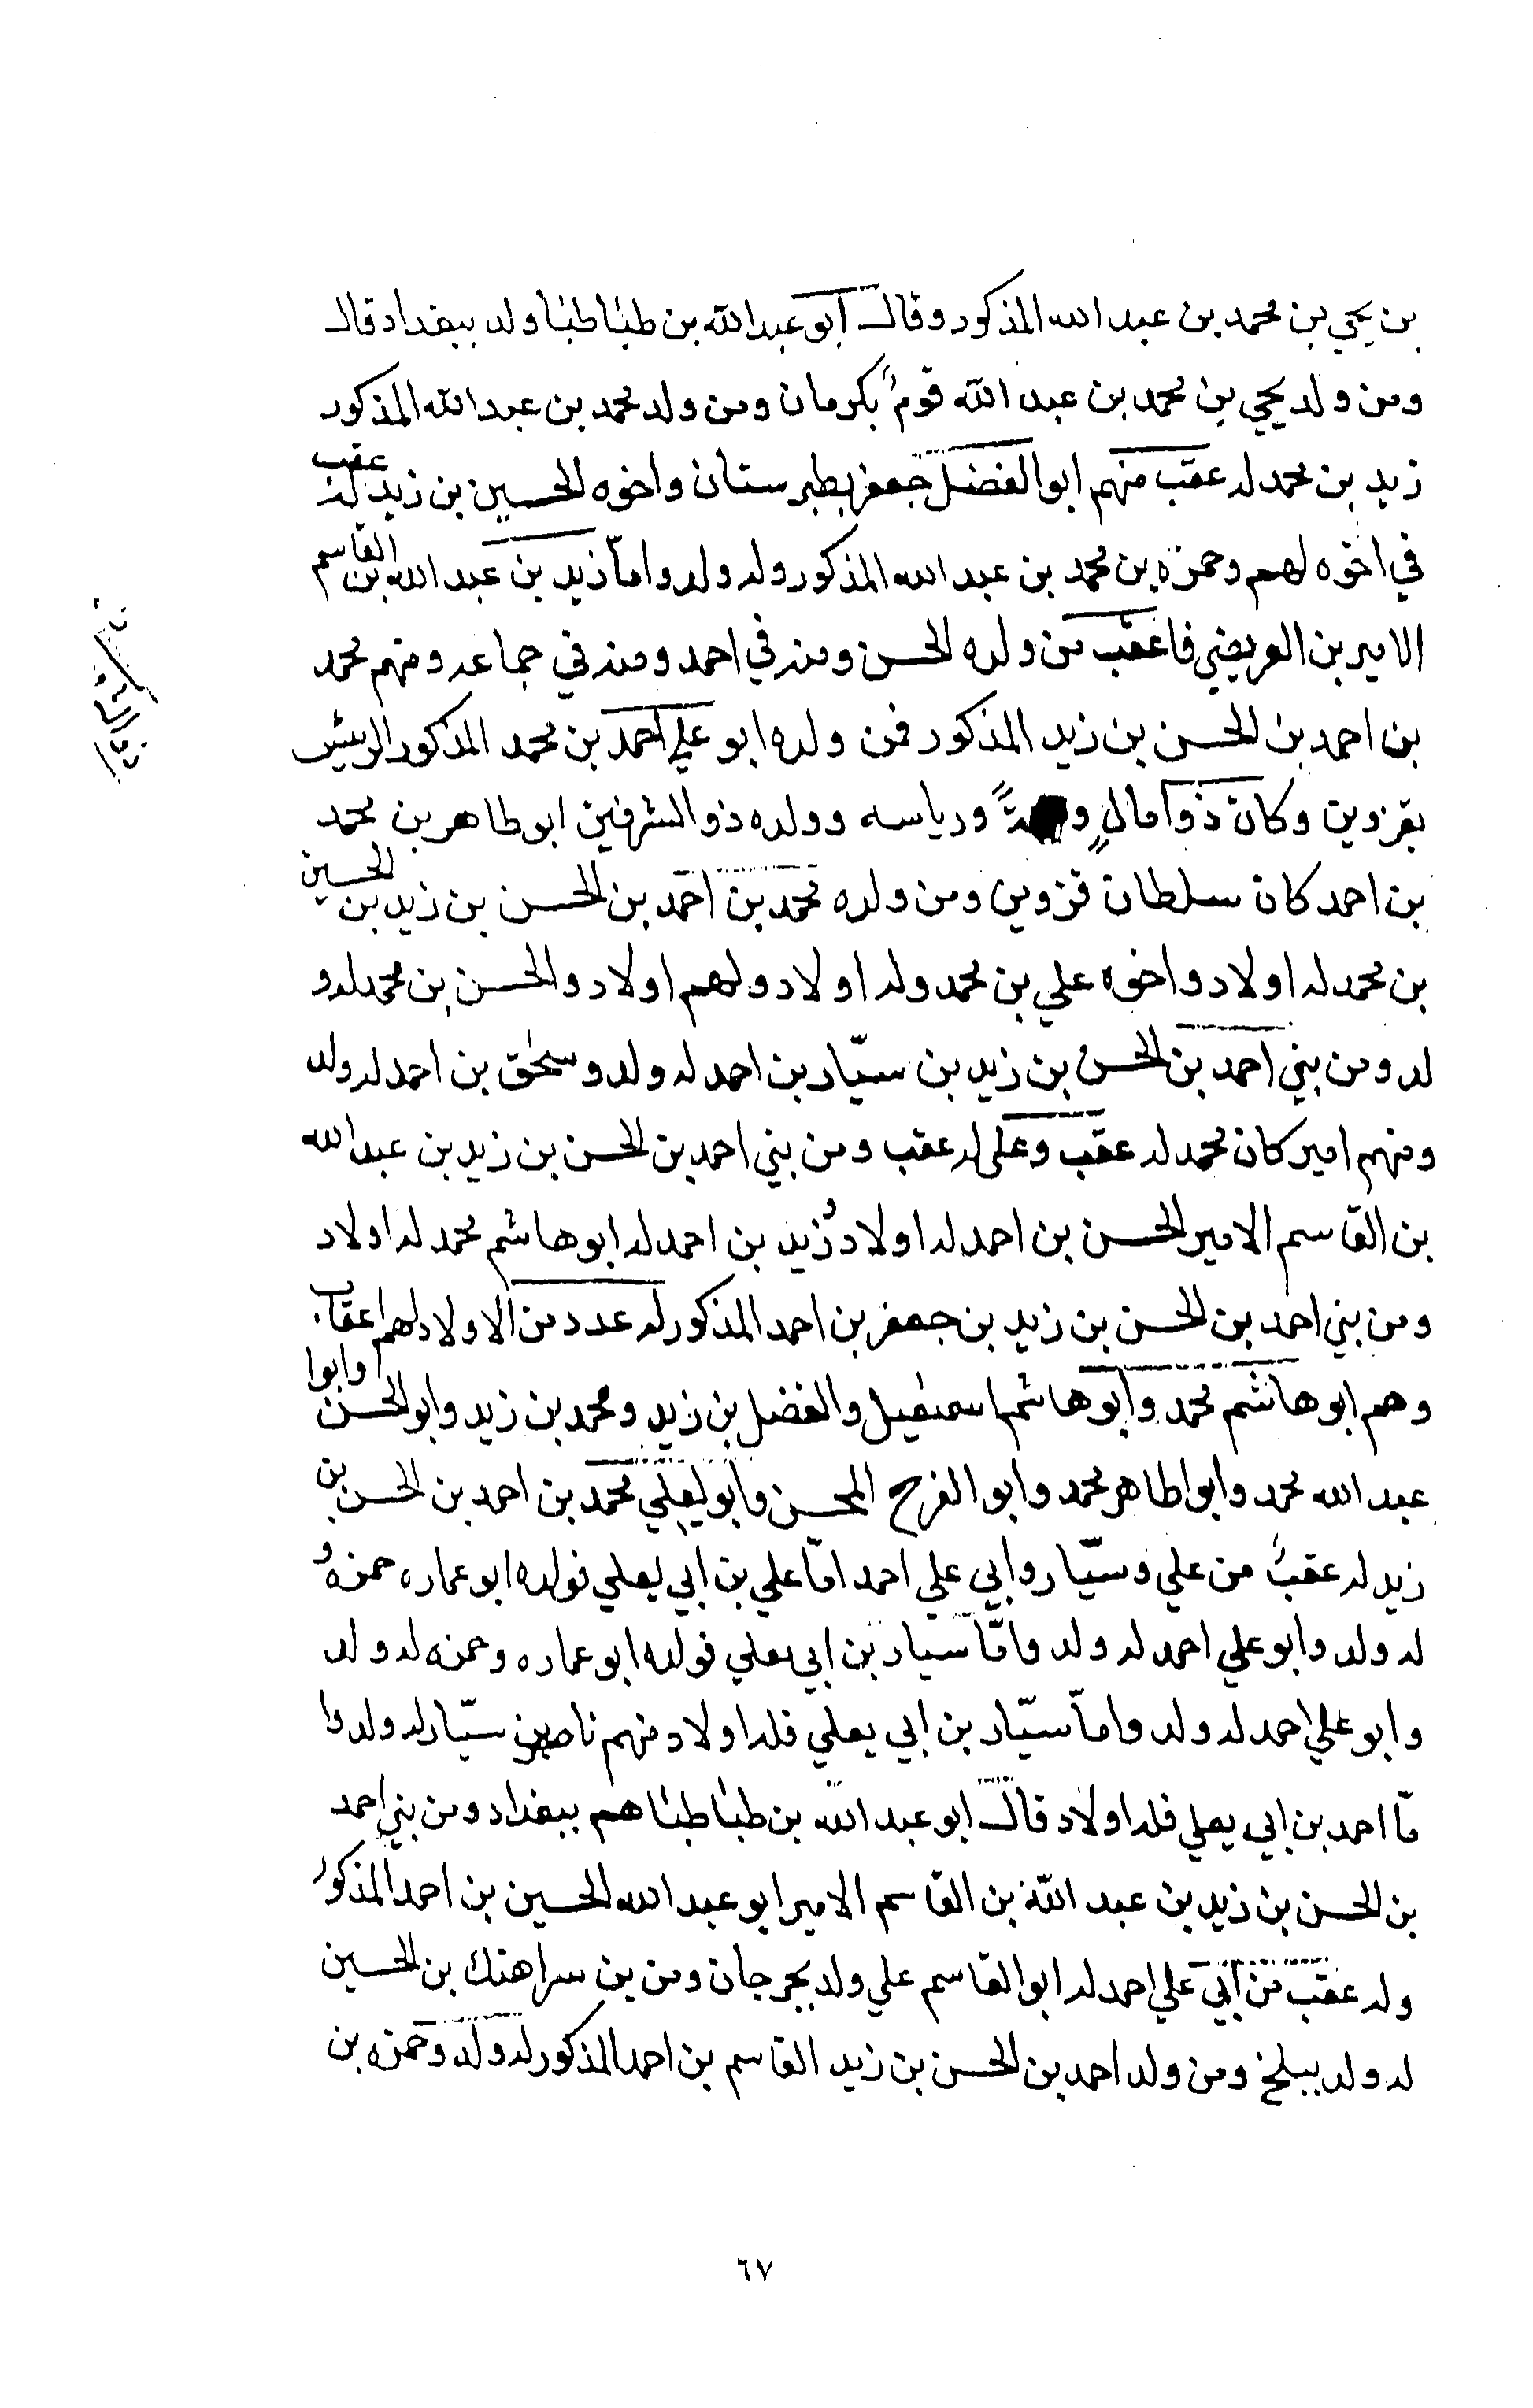 بن يحيي بن محمد بن عبد الله المذكور وقال ابو عبد الله بن طباطبا ولد ببغداد قال
ومن ولد يحيي بن محمد بن عبد الله قومٌ بكرمان ومن ولد محمد بن عبد الله المذكور
زيد بن محمد له عقب منهم ابو الفضل جعفر بطبرستان واخوه الحسين بن زيد له عقب
في اخوه لهم وحمزه بن محمد بن عبد الله المذكور وله ولد واماّ زيد بن عبد الله بن القاسم
الامير بن العريضي فاعقب من ولده الحسن ومنه في احمد ومنه في جماعه ومنهم محمد
بن احمد بن الحسن بن زيد المذكور فمن ولده ابو علي احمد بن محمد المذكور الرييس
بقزوين وكان ذوا مالٍ ورياسه وولده ذو الشرفين ابو طاهر بن محمد
بن احمد كان سلطان قزوين ومن ولده محمد بن احمد بن الحسن بن زيد بن الحسين
بن محمد له اولاد واخوه علي بن محمد وله اولاد ولهم اولاد والحسن بن محمد له و
لد ومن بني احمد بن الحسن بن زيد بن سيّار بن احمد له ولد وسحٰق بن احمد له ولد
ومنهم اميركان محمد له عقب وعلى له عقب ومن بني احمد بن الحسن بن زيد بن عبد الله
بن القاسم الامير الحسن بن احمد له اولاد وزيد بن احمد له ابو هاشم محمد له اولاد
ومن بني احمد بن الحسن بن زيد بن جعفر بن احمد المذكور له عدد من الاولاد لهم اعقاب
وهم ابو هاشم محمد وابو هاشم اسمٰعيل والفضل بن زيد ومحمد بن زيد وابو الحسن وابوا
عبد الله محمد وابوا طاهر محمد وابو الفرح المحسن وابو يعلي محمد بن احمد بن الحسن بن
زيد له عقبٌ من علي وسيّار وابي علي احمد امّا علي بن ابي يعلي فولده ابو عماره حمزهُ
له ولد وابو علي احمد له ولد وامّا سيار بن ابي يعلي فولده ابو عماره وحمزه له ولد
وابو علي احمد له ولد واماّ سيّار بن ابي يعلي فله اولاد منهم ناصر بن سيّار له ولد وا
مّا احمد بن ابي يعلي فله اولاد قال ابو عبد الله بن طباطبا هم ببغداد ومن بني احمد
بن الحسن بن زيد بن عبد الله بن القاسم الامير ابو عبد الله الحسين بن احمد المذكور
وله عقب من ابي علي احمد له ابو القاسم علي ولد بجرجان ومن بن سراهنك بن الحسين
له ولد ببلخ ومن ولد احمد بن الحسن بن زيد القاسم بن احمد المذكور له ولد وحمزه بن
٦٧